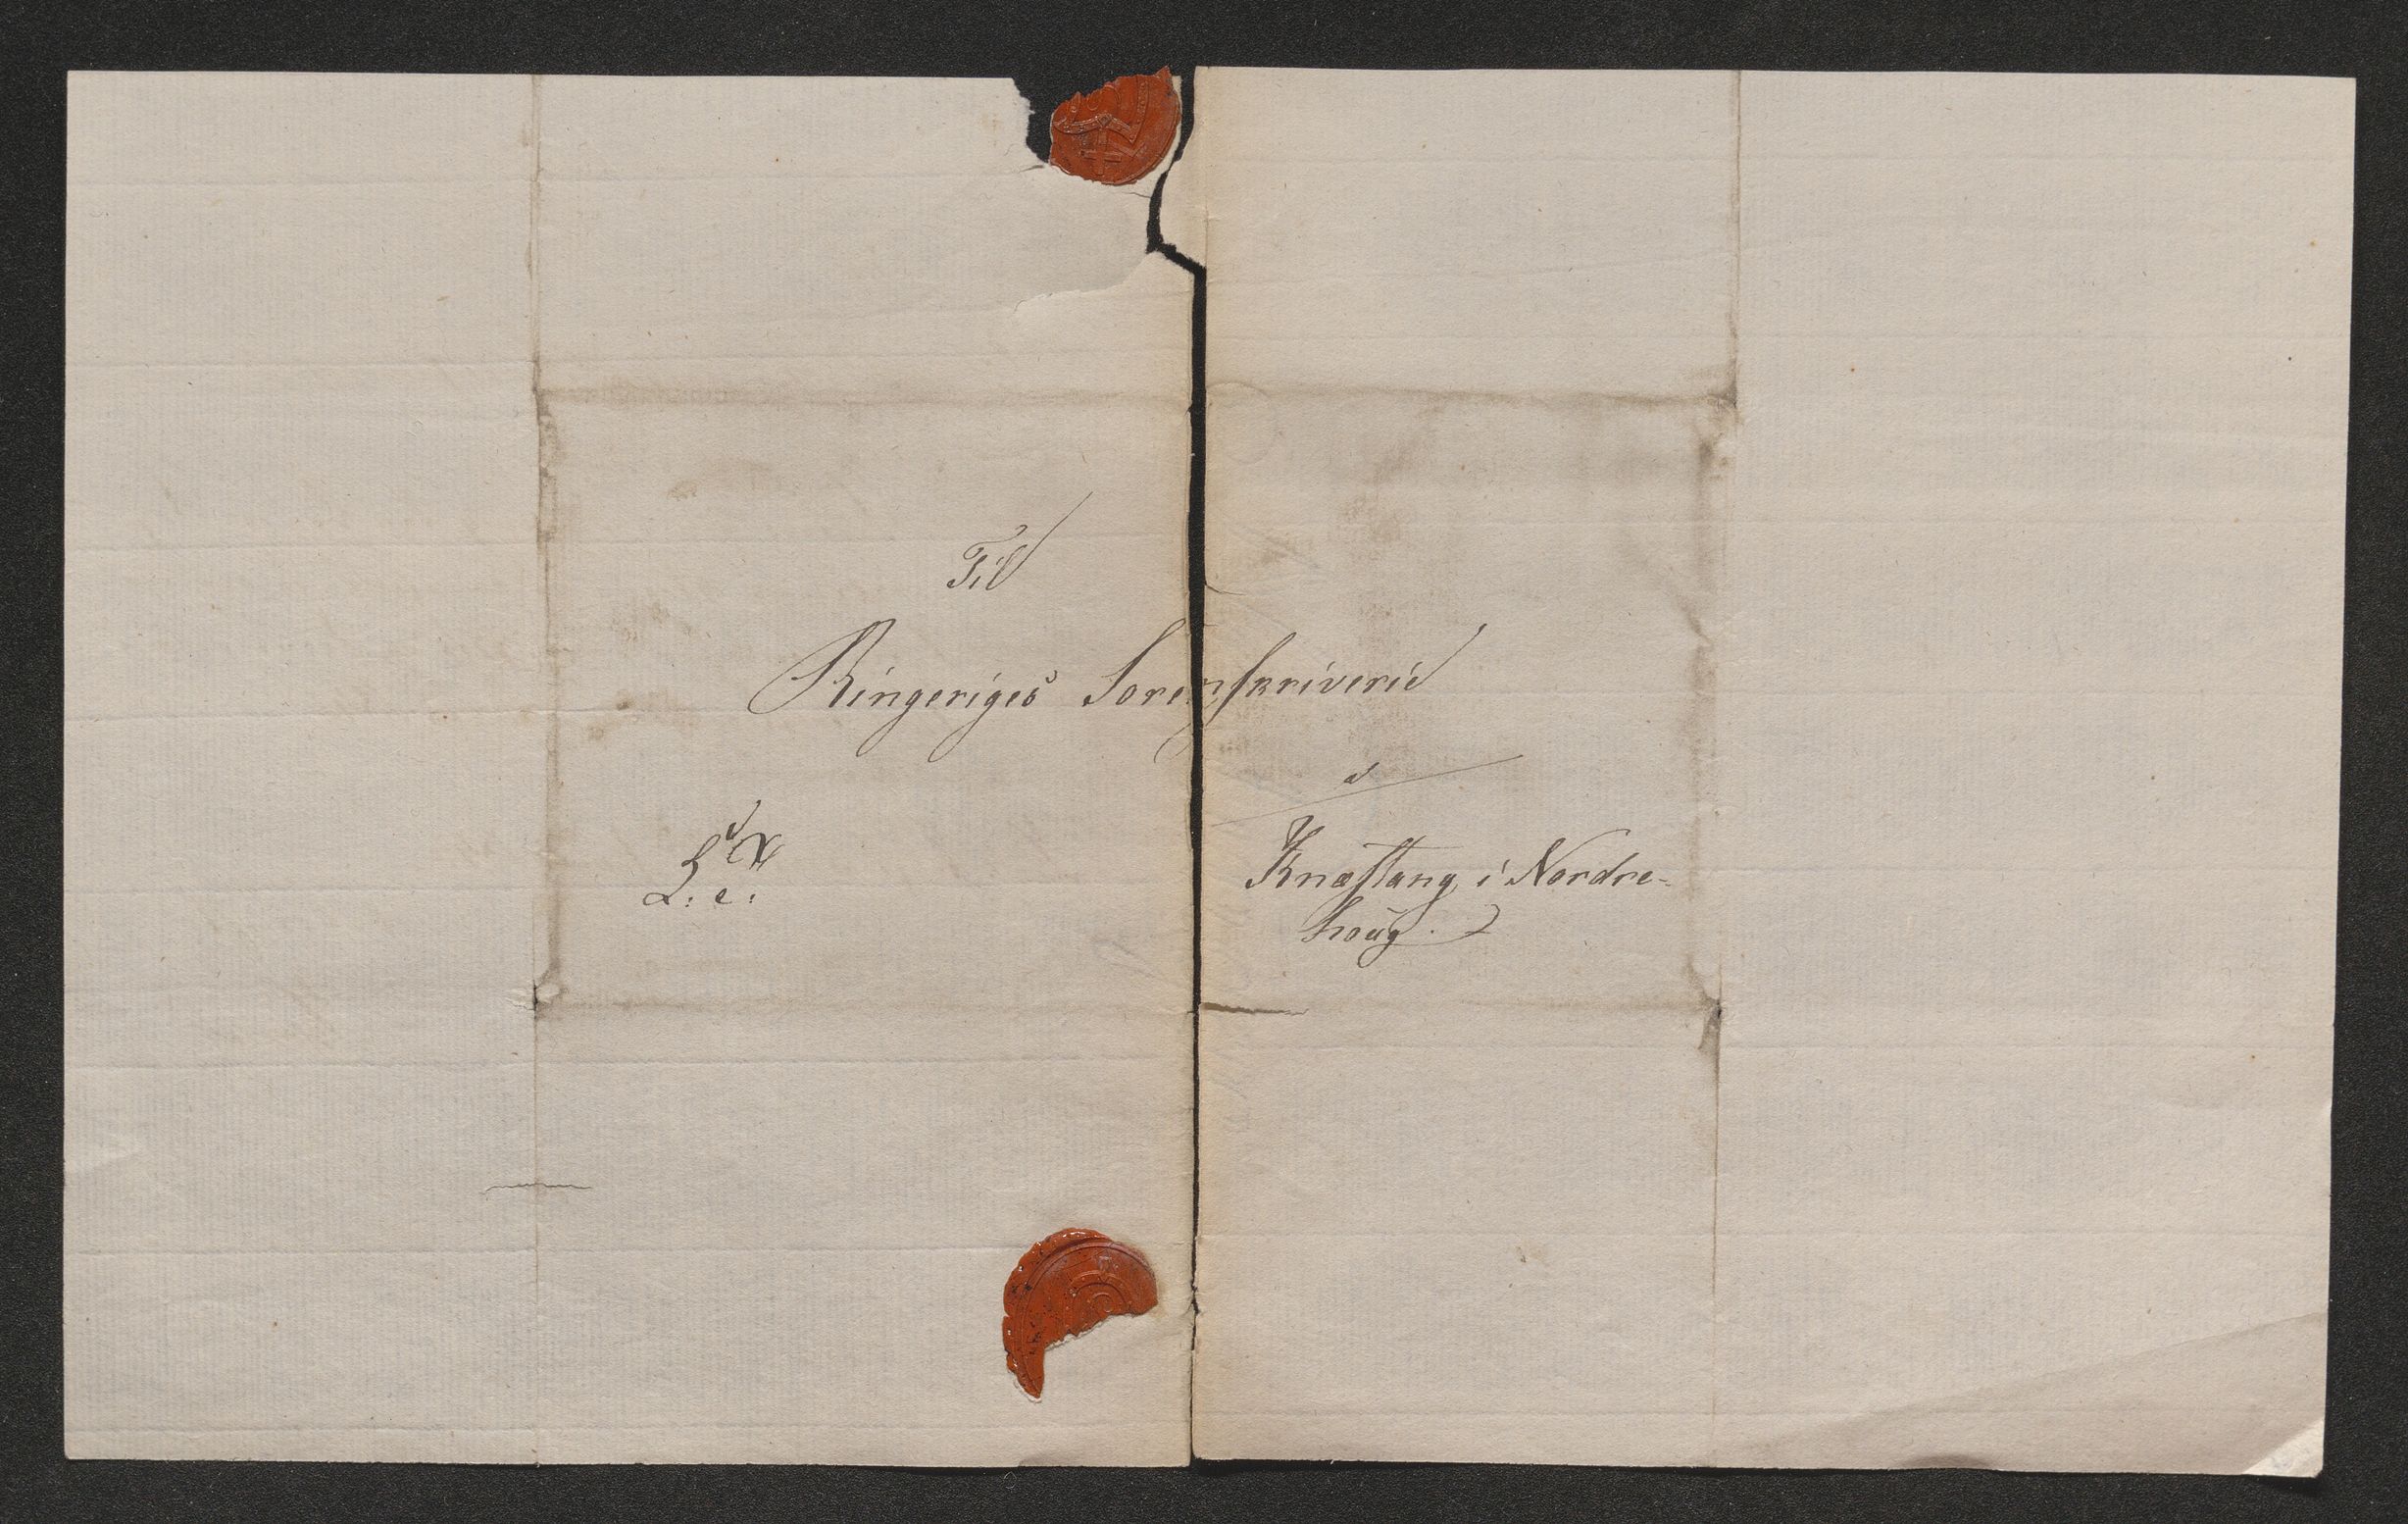 Til
Ringeriges Sorenskriverie
Knæstang i Nordre-
houg.